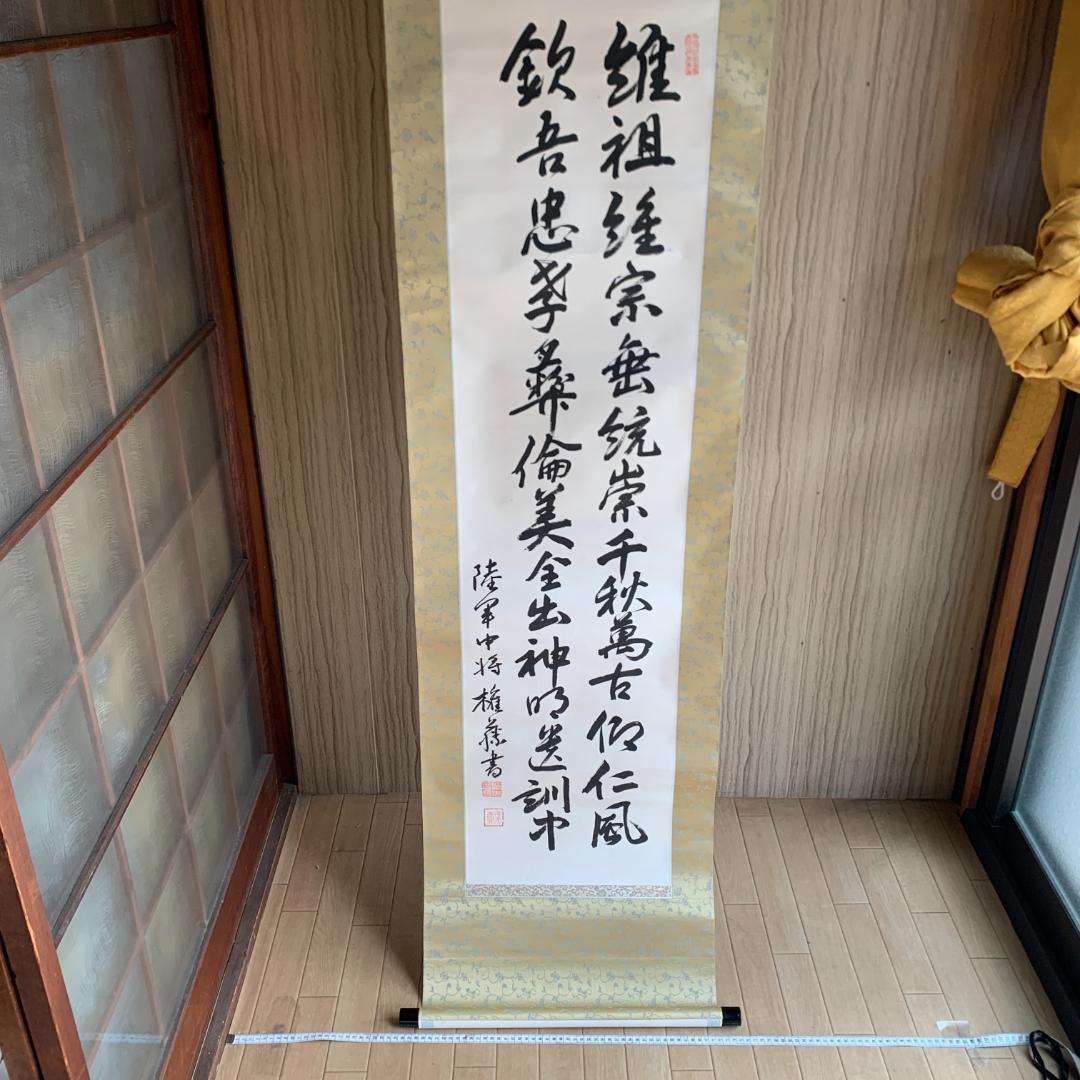 維祖維宗垂統崇千秋萬古仰仁風
欽吾忠孝彝倫美全出神明遺訓中
陸軍中将権藤書